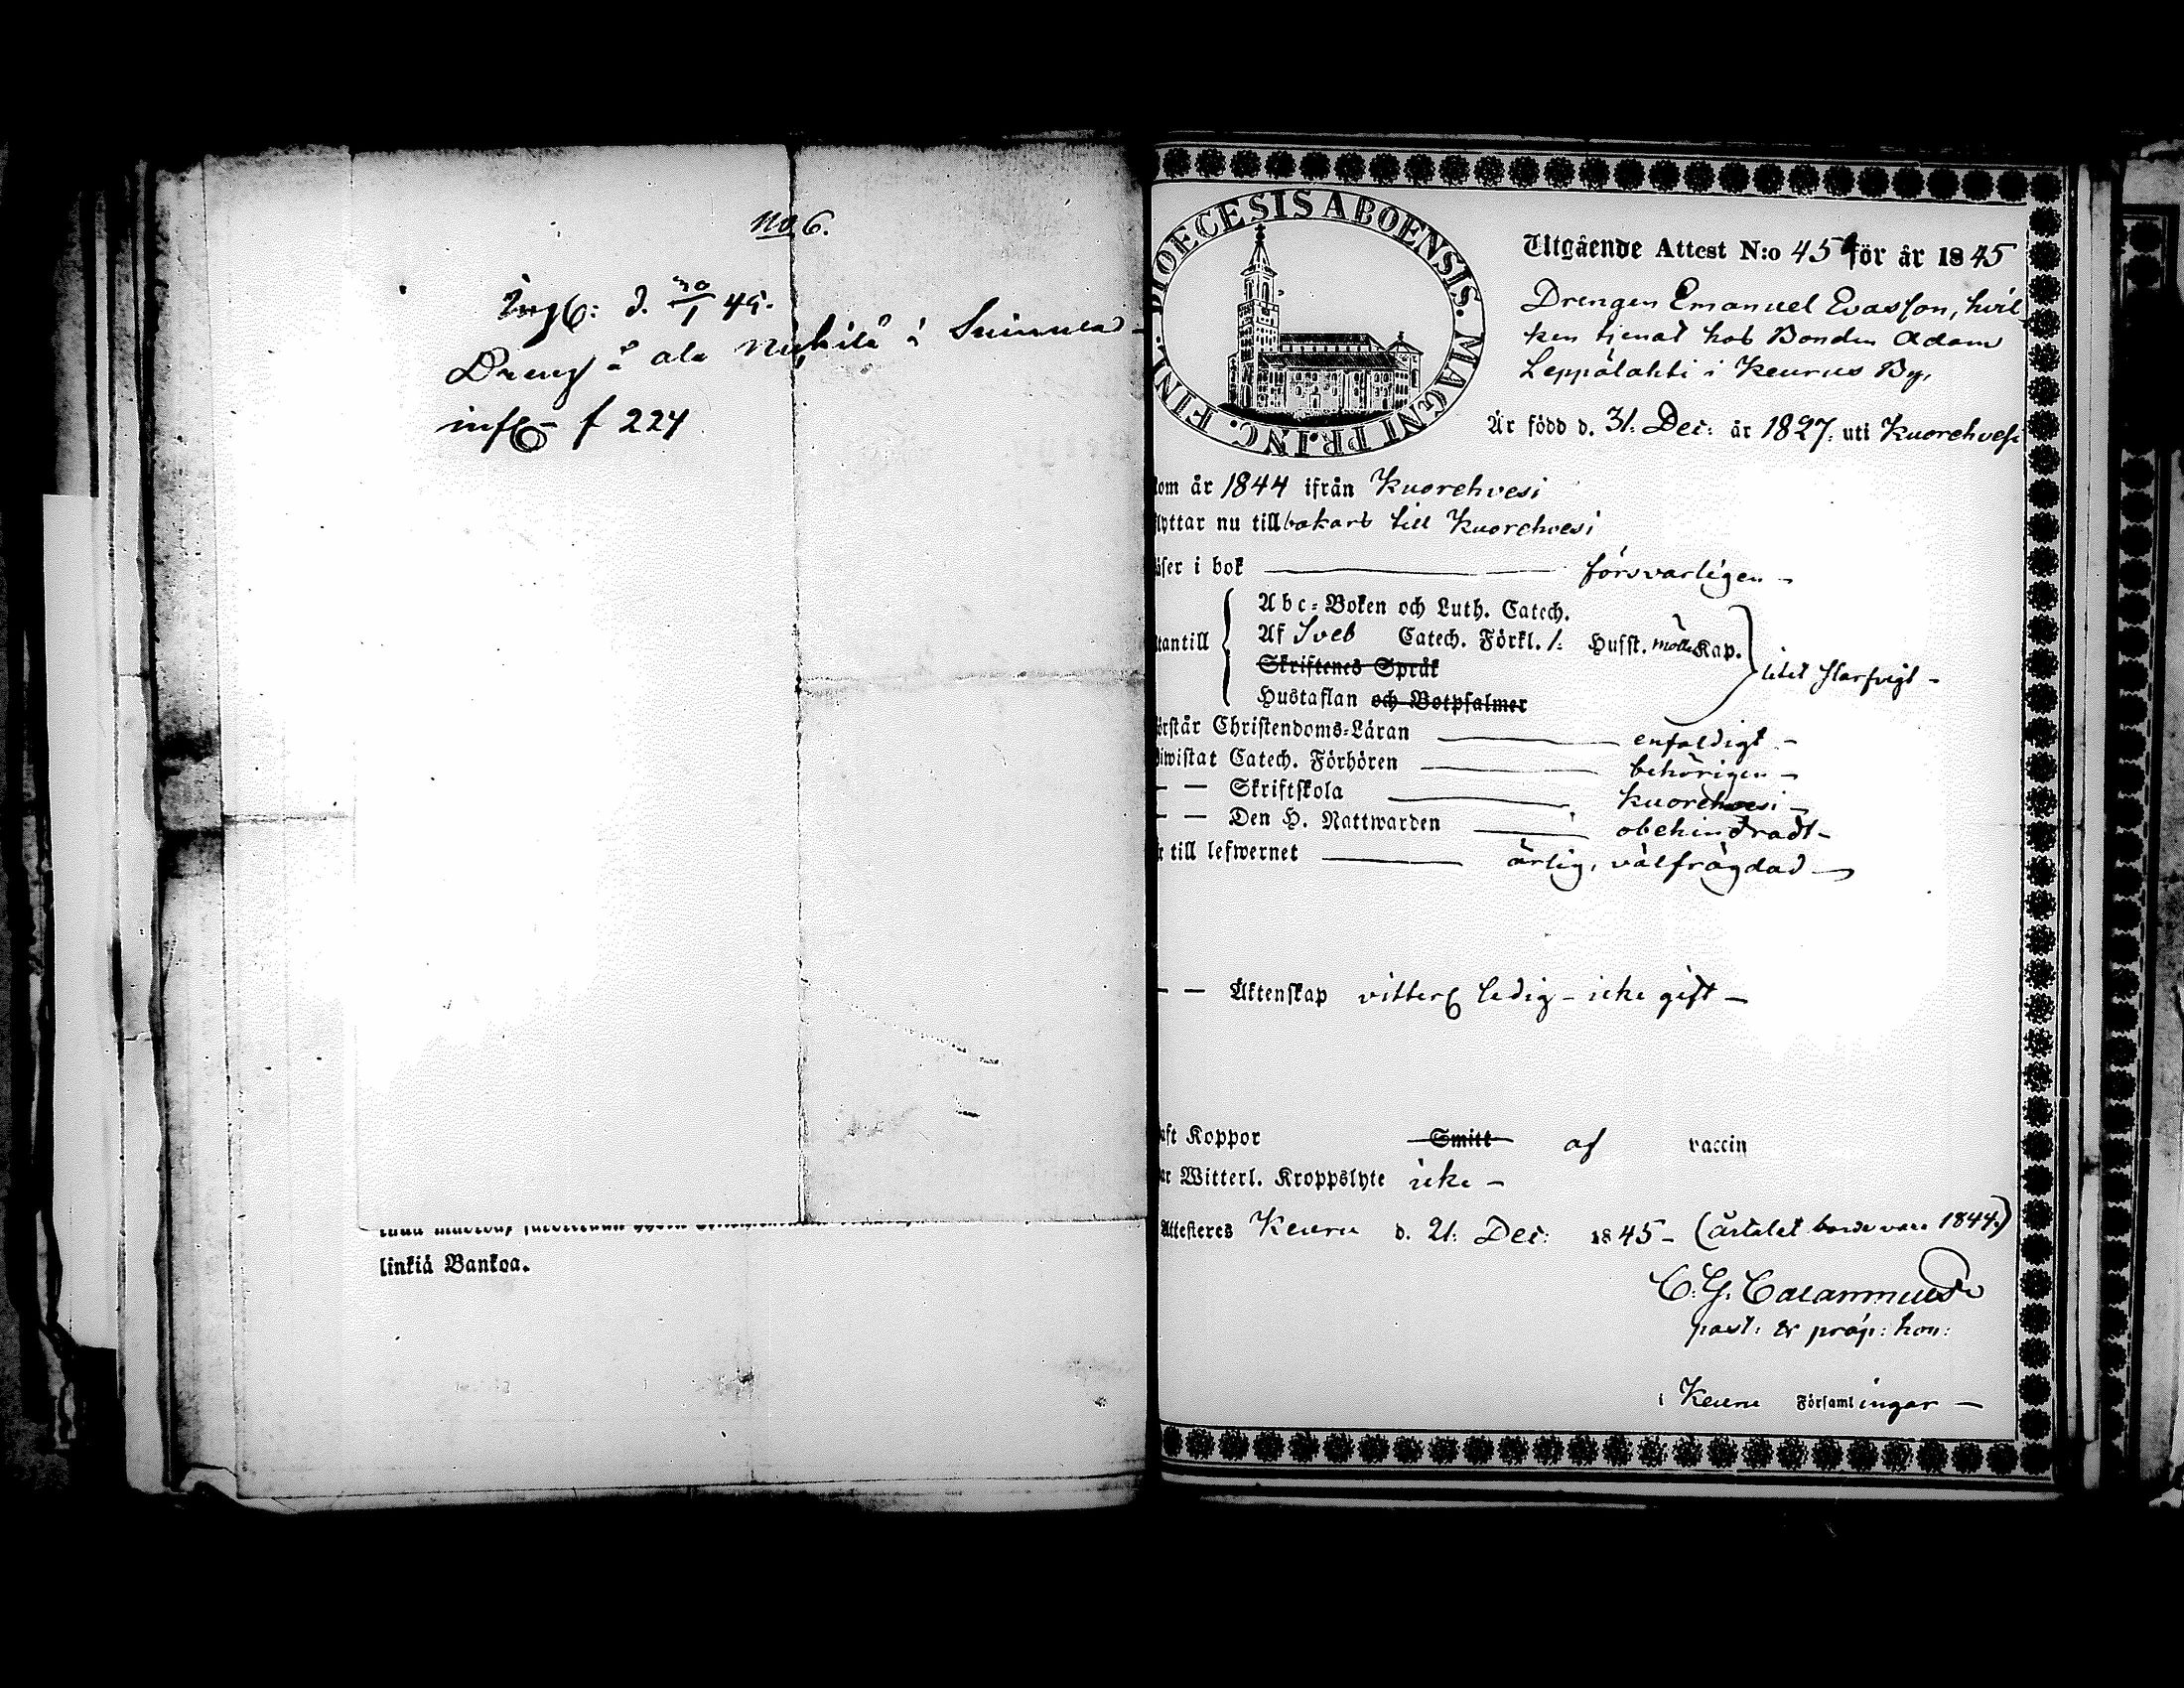 No 6.
d. 30/1 45.
Dreng å ala i
f 224
linkiä Bankoa.
DIOECESIS ABOENSIS. MAGNI PRINC. FINL.
Utgående Attest N:o 45 för år 1845
Drengen Emanuel Evasson, hvil-
ken tjenat hos Bonden Adam
Leppälahti i Keurus By,
Är född d. 31. Dec: år 1827. uti Kuorehvesi
kom år 1844 ifrån Kuorehvesi
flyttar nu tillbakars till Kuorehvesi
läser i bok försvarligen
utantill
Abc-Boken och Luth. Catech.
Af Sveb Catech. Förkl. 1: Husst. Kap.
Skriftenes Språk
Hustaflan och Botpsalmer
litet starfvigt
förstår Christendoms-Läran enfaldigt
biwistat Catech. Förhören behörigen
— — Skriftskola Kuorehvesi
— — Den H. Nattwarden obehindradt
är till lefwernet ärlig, välfrägdad
— — Äktenskap ledig - icke gift
haft Koppor Smitt af vaccin
har Witterl. Kroppslyte icke
Attesteres Keuru d. 21: Dec: 1845 (årtalet borde vara 1844.)
C. G. Calamnius
past: & præp: hon:
i Keuru Församlingar